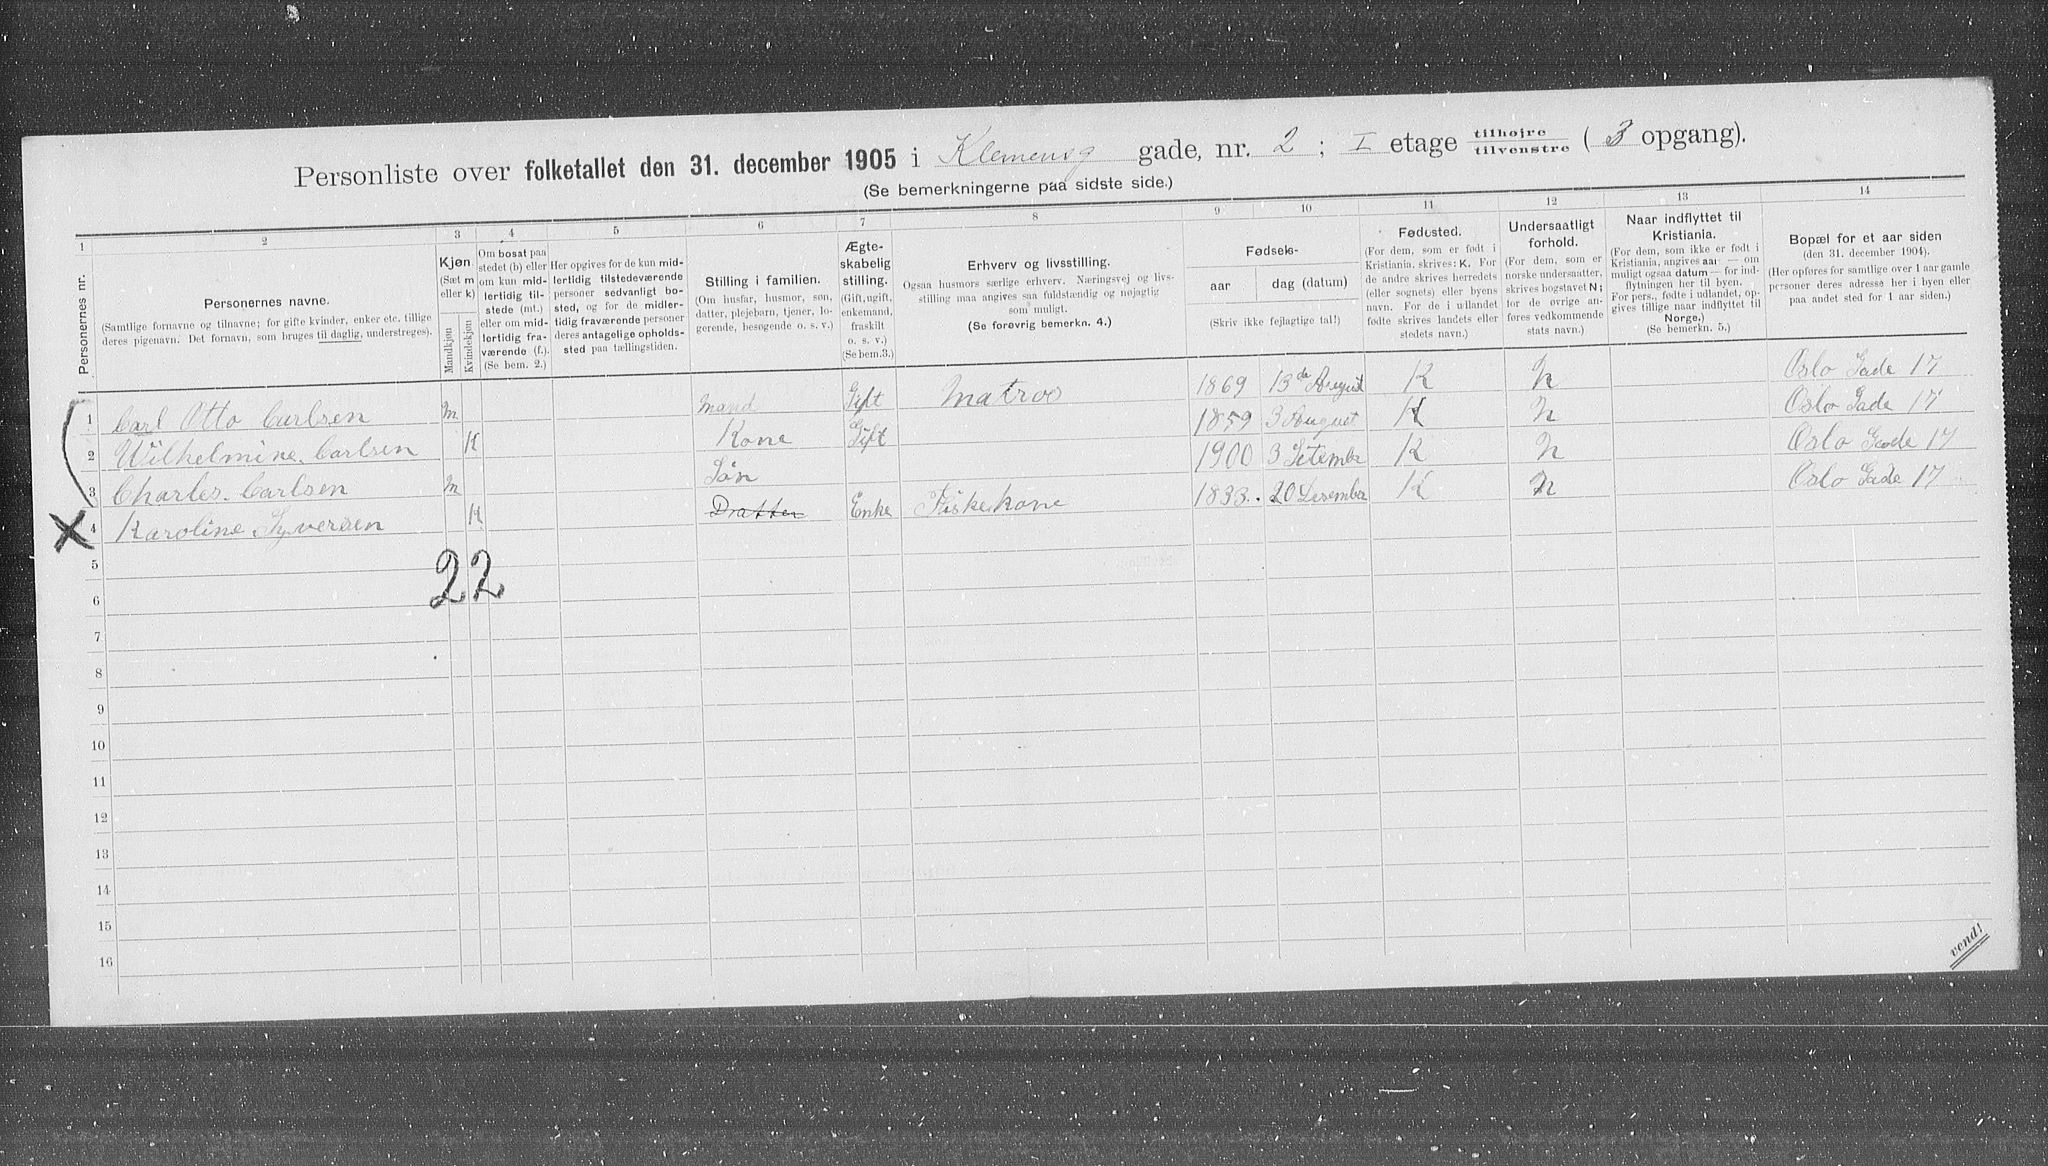 Personliste over folketallet den 31. december 1905 i Klemensg gade, nr. 2; I etage tilhøjre tilvenstre (3 opgang).
(Se bemerkningerne paa sidste side.)
1 2 3 4 5 6 7 8 9 10 11 12 13 14
Personernes nr.
Personernes navne.
(Samtlige fornavne og tilnavne; for gifte kvinder, enker etc. tillige deres pigenavn. Det fornavn, som bruges til daglig, understreges).
Kjøn.
(Sæt m eller k)
Mandkjøn Kvindekjøn
Om bosat paa stedet (b) eller om kun midlertidig tilstede (mt.) eller om midlertidig fraværende (f.). (Se bem. 2.)
Her opgives for de kun midlertidig tilstedeværende personer sedvanligt bosted, og for de midlertidig fraværende personer deres antagelige opholdssted paa tællingstiden.
Stilling i familien.
(Om husfar, husmor, søn, datter, plejebarn, tjener, logerende, besøgende o. s. v.)
Ægteskabelig stilling.
(Gift, ugift, enkemand, fraskilt o. s. v.) (Se bem. 3.)
Erhverv og livsstilling.
Ogsaa husmors særlige erhverv. Næringsvej og livsstilling maa angives saa fuldstændig og nøjagtig som muligt.
(Se forøvrig bemerkn. 4.)
Fødsels-
aar dag (datum)
(Skriv ikke fejlagtige tal!)
Fødested.
(For dem, som er født i Kristiania, skrives: K. For de andre skrives herredets (eller sognets) eller byens navn. For de i udlandet fødte skrives landets eller stedets navn.)
Undersaatligt forhold.
(For dem, som er norske undersaatter, skrives bogstavet N; for de øvrige anføres vedkommende stats navn.)
Naar indflyttet til Kristiania.
(For dem, som ikke er født i Kristiania, angives aar — om muligt ogsaa datum — for indflytningen her til byen. For pers., fødte i udlandet, opgives tillige naar indflyttet til Norge.) (Se bemerkn. 5.)
Bopæl for et aar siden
(den 31. december 1904).
(Her opføres for samtlige over 1 aar gamle personer deres adresse her i byen eller paa andet sted for 1 aar siden.)
1 Carl Otto Carlsen m Mand Gift Matros 1869 13de August K N Oslo Gade 17
2 Wilhelmine. Carlsen K Kone Gift 1859 3 August K N Oslo Gade 17
3 Charles. Carlsen m Søn 1900 3 Setember K N Oslo Gade 17
X 4 Karoline Syversen K Dratter Enke Fiskekone 1833. 20 Desember K N Oslo Gade 17
22
5
6
7
8
9
10
11
12
13
14
15
16
vend!